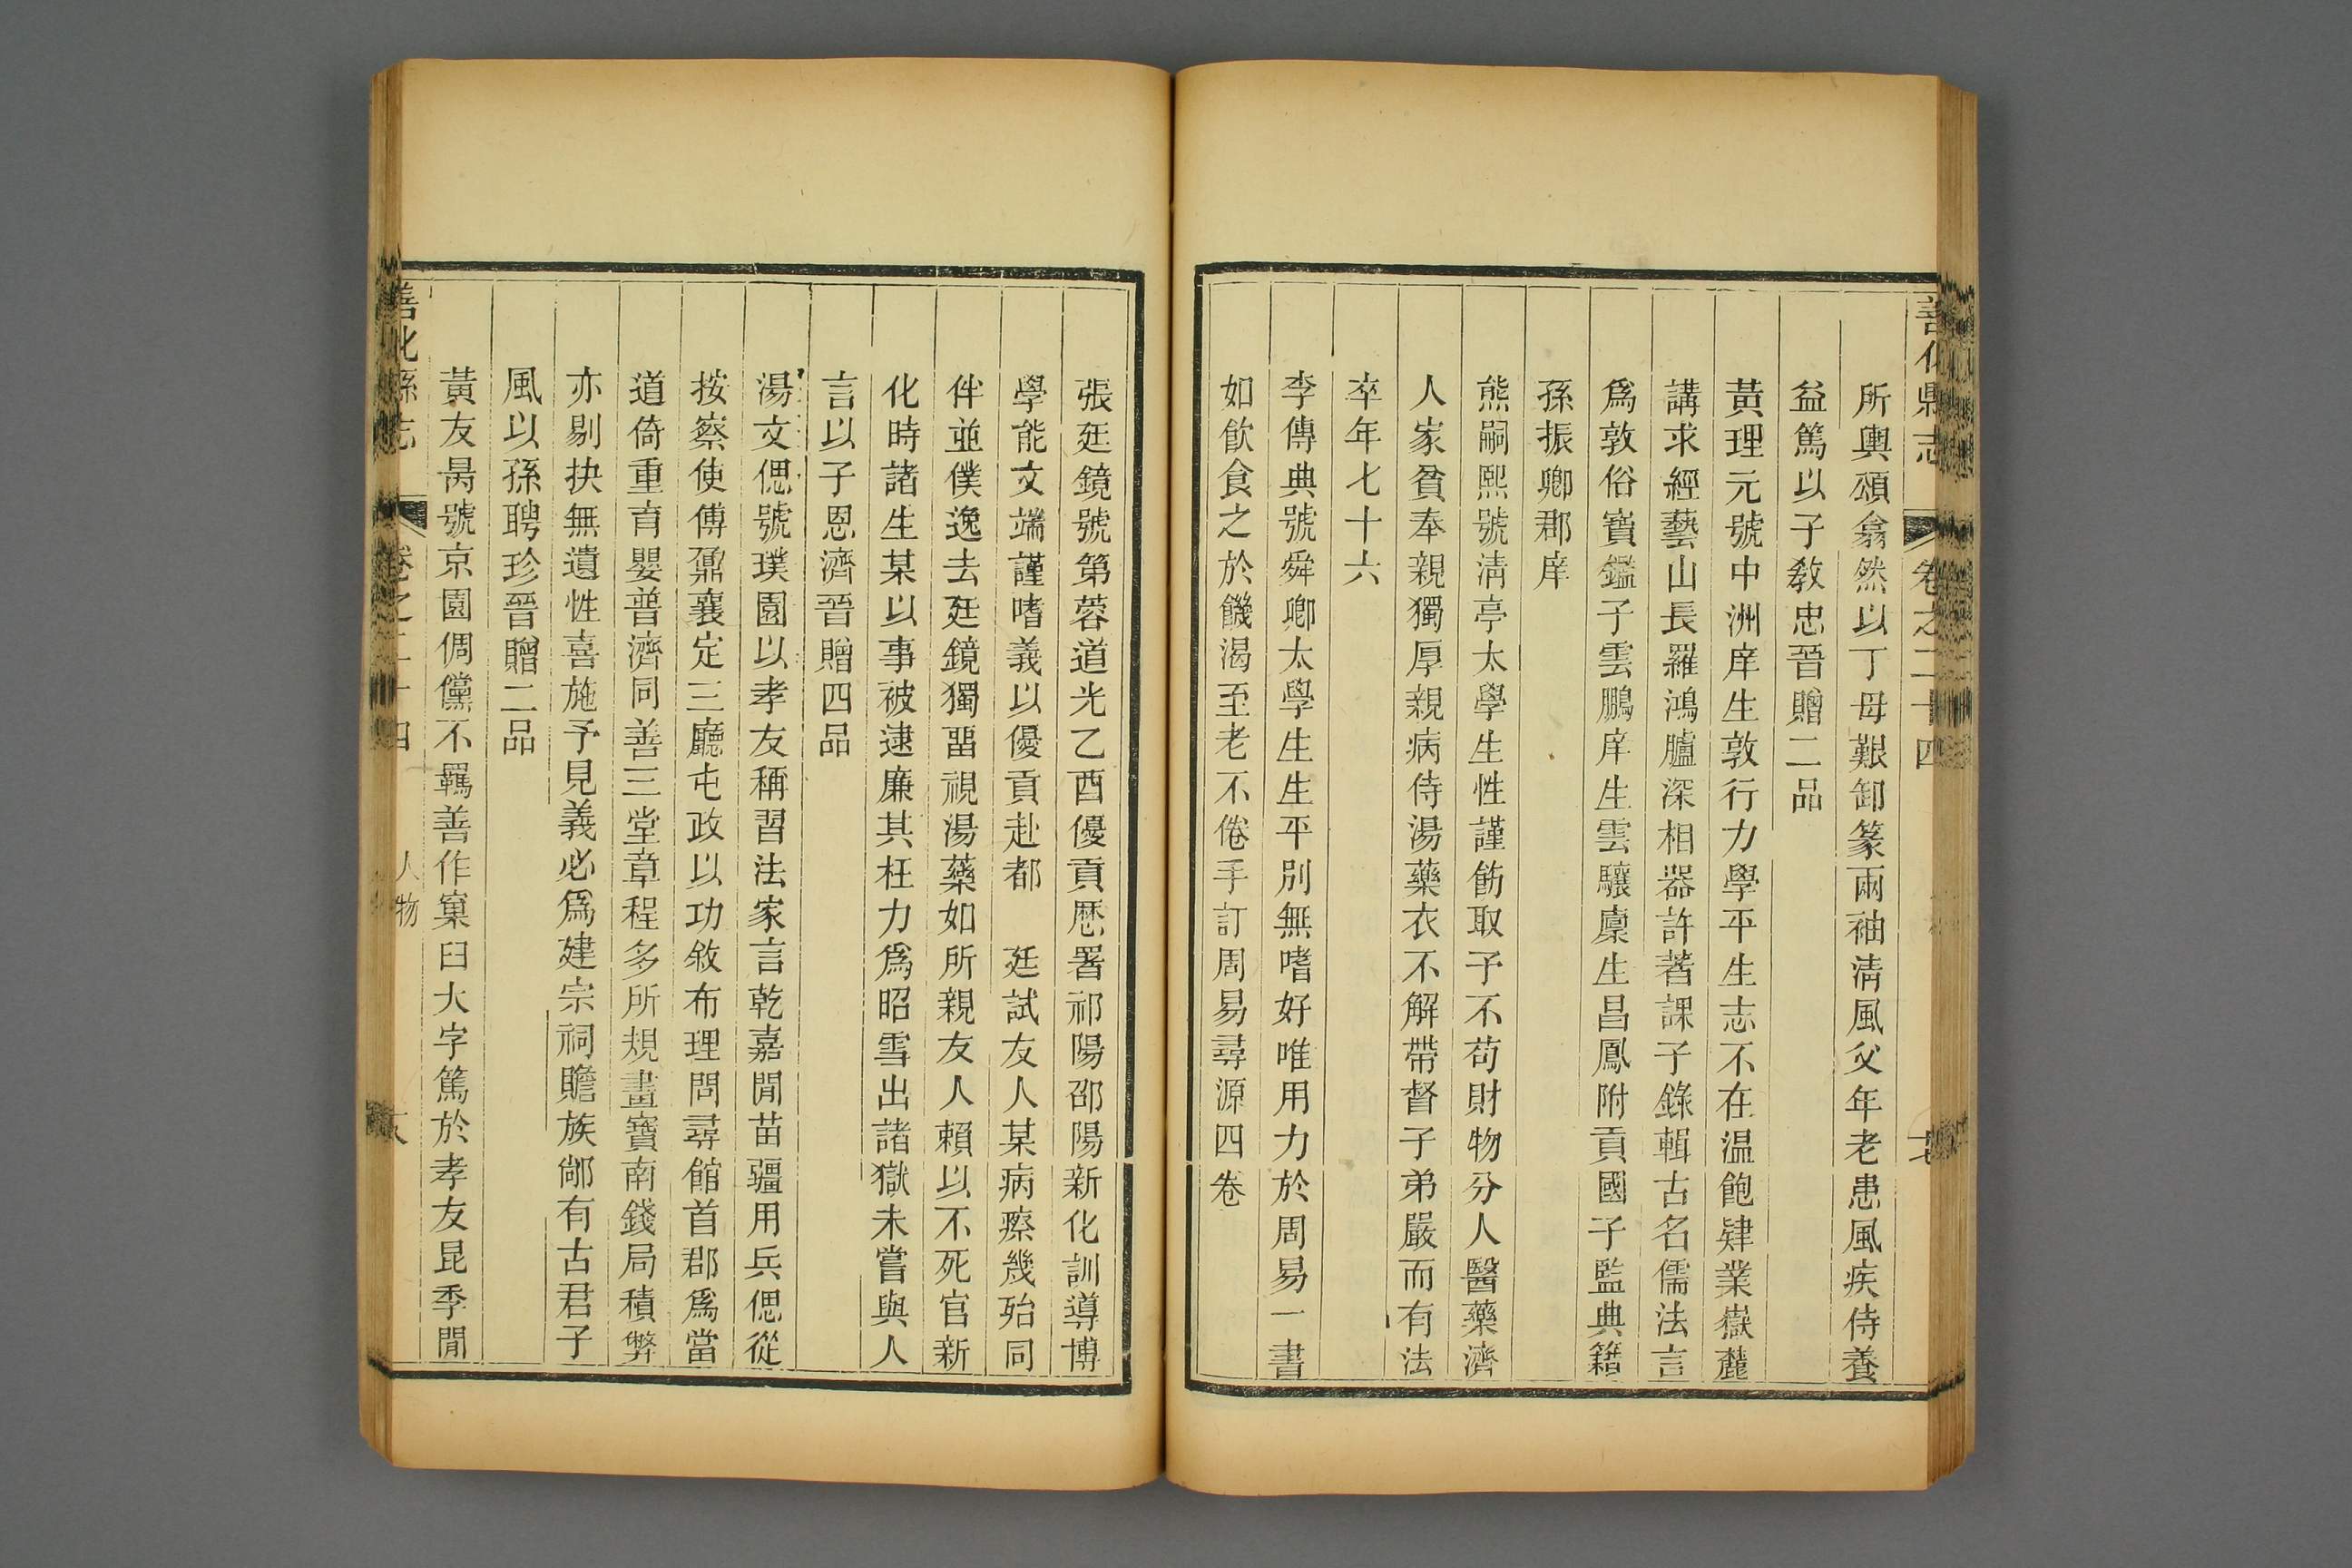 善化縣志 卷之二十四
所輿頌翕然以丁母艱卸篆兩袖清風父年老患風疾侍養
益篤以子敎忠晉贈二品
黃理元號中洲庠生敦行力學平生志不在温飽肄業嶽麓
講求經藝山長羅鴻臚深相器許著課子錄輯古名儒法言
爲敦俗寶鑑子雲鵬庠生雲驤廩生昌鳳附貢國子監典籍
孫振卿郡庠
熊嗣熙號淸亭太學生性謹飭取予不苟財物分人醫藥濟
人家貧奉親獨厚親病侍湯藥衣不解帶督子弟嚴而有法
卒年七十六
李傳典號舜卿太學生生平別無嗜好唯用力於周易一書
如飮食之於饑渴至老不倦手訂周易尋源四卷
張廷鏡號第蓉道光乙酉優貢歷署祁陽邵陽新化訓導博
學能文端謹嗜義以優貢赴都 廷試友人某病瘵幾殆同
伴並僕逸去廷鏡獨畱視湯藥如所親友人賴以不死官新
化時諸生某以事被逮廉其枉力爲昭雪出諸獄未嘗與人
言以子恩濟晉贈四品
湯文偲號璞園以孝友稱習法家言乾嘉閒苗疆用兵偲從
按察使傅鼐襄定三廳屯政以功敘布理問尋館首郡爲當
道倚重育嬰普濟同善三堂章程多所規畫寶南錢局積弊
亦剔抉無遺性喜施予見義必爲建宗祠贍族鄰有古君子
風以孫聘珍晉贈二品
黃友昺號京園倜儻不羈善作窠臼大字篤於孝友昆季閒
善化縣志 卷之二十四 人物